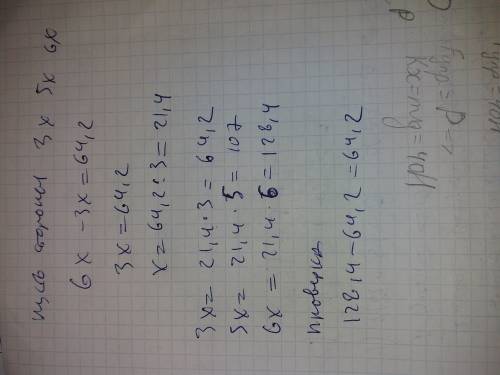 пусть стороны 3x 5x 6x
6x - 3x = 64,2
3x = 64,2
x = 64,2 : 3 = 21,4
3x = 21,4 · 3 = 64,2
5x = 21,4 · 5 = 107
6x = 21,4 · 6 = 128,4
проверка
128,4 - 64,2 = 64,2
Fупр = P
kx = mg = 40H